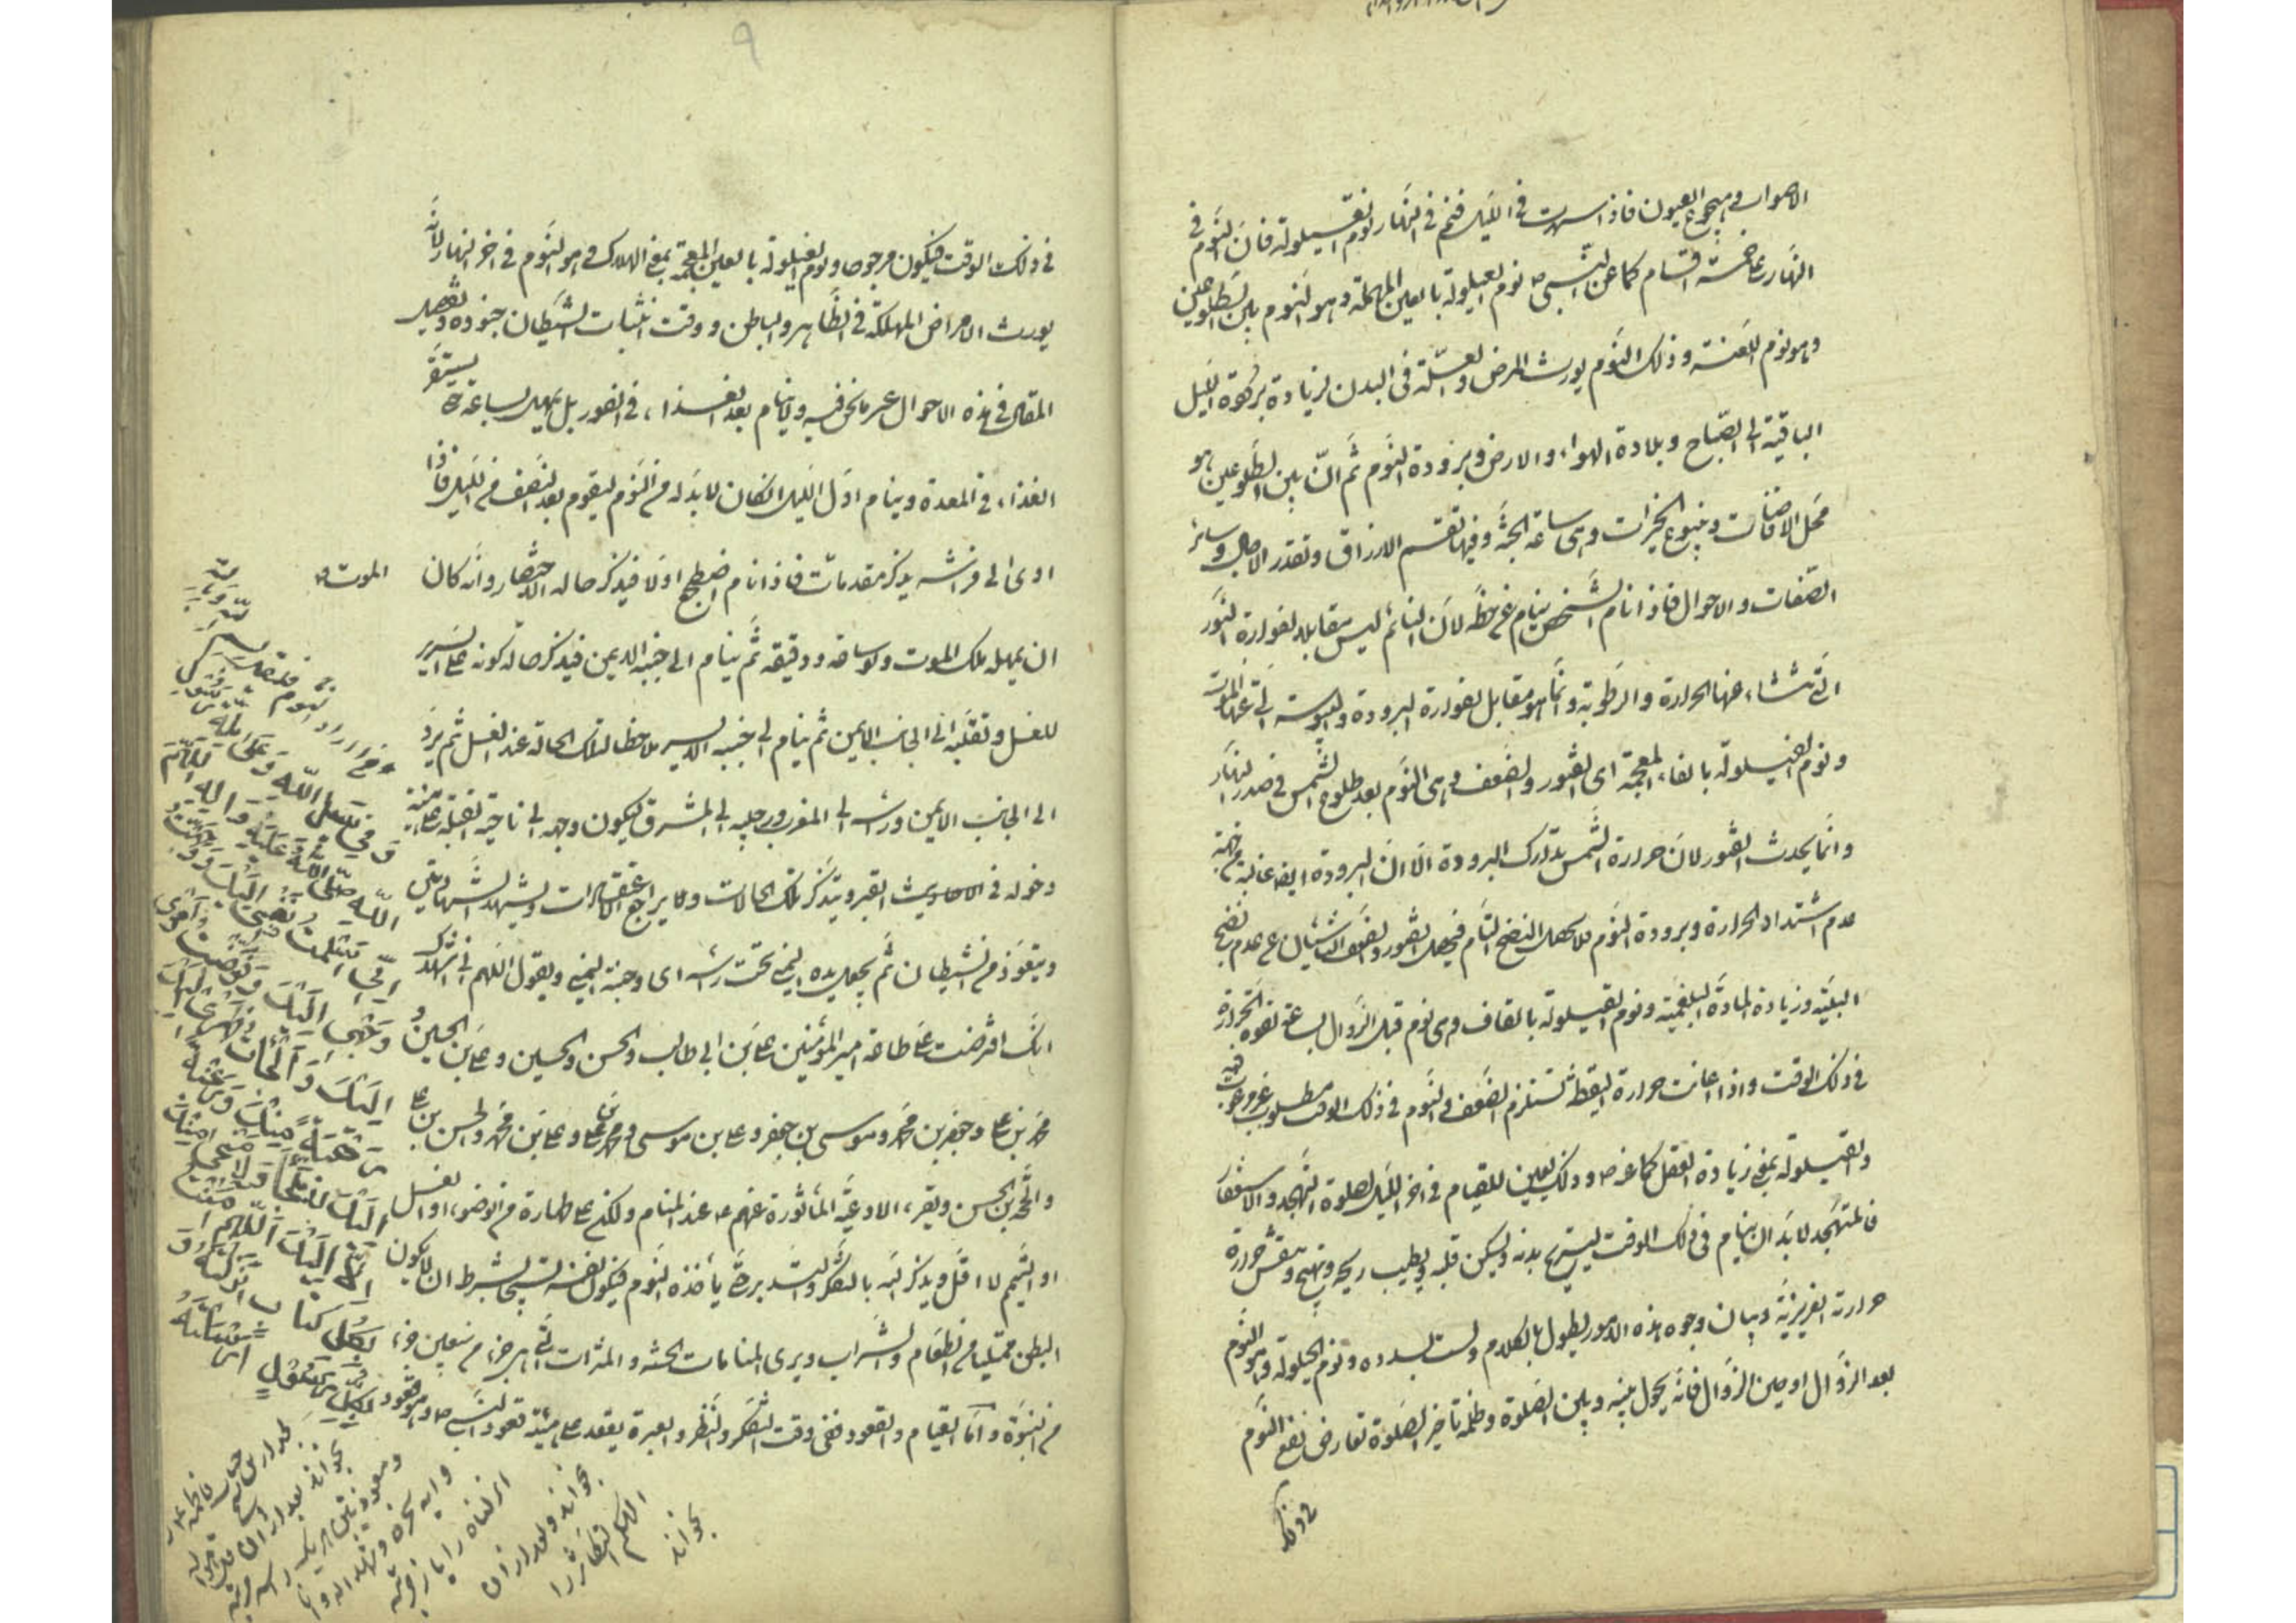 الاصوات وهجوع العيون فاذا سهرت فى الليل فنم فى النهار نوم القيلولة فان النوم فى
النهار على خمسة اقسام كما عن النبى ص نوم العيلولة بالعين المهملة وهو النوم بين الطلوعين
وهو نوم اللعنة وذلك النوم يورث المرض والعلة فى البدن لزيادة برودة الليل
الباقية الى الصباح وبلادة الهواء والارض وبرودة النوم ثم ان بين الطلوعين هو
محل الافاضات وينبوع الخيرات وهى ساعة الجنة وفيها تقسم الارزاق وتقدر الاجال وسائر
الصفات والاحوال فاذا نام الشخص ينام عن حظه لان النائم ليس مقابلا لفوارة النور
التى تنشاء عنها الحرارة والرطوبة وانما هو مقابل لفوارة البرودة واليبوسة التى عنها الموت
ونوم الفيلولة بالفاء المعجمة اى الفتور والضعف وهى النوم بعد طلوع الشمس فى صدر النهار
وانما يحدث الفتور لان حرارة الشمس تتدارك البرودة الا ان البرودة ايضا غالبة من جهة
عدم اشتداد الحرارة وبرودة النوم فلا يحصل النضج التام فيحصل الفتور والضعف الناشئان عن عدم نضج
البنية وزيادة المادة البلغمية ونوم القيلولة بالقاف وهى نوم قبل الزوال بساعة لقوة الحرارة
فى ذلك الوقت واذا اعانت حرارة اليقظة تستلزم الضعف والنوم فى ذلك الوقت مطلوب مرغوب فيه
والقيلولة بمعنى زيادة العقل كما عنه ص وذلك يعين للقيام فى اخر الليل لصلوة التهجد والاستغفار
فالمتهجد لا بد ان ينام فى ذلك الوقت ليستريح بدنه ويسكن قلبه ويطيب ريحه وتهيج وتنتعش حرارة
حرارته الغريزية وبيان وجوه هذه الامور يطول بالكلام ولست بصدده ونوم الحيلولة وهو النوم
بعد الزوال او حين الزوال فانه يحول بينه وبين الصلوة وظلمة تاخير الصلوة تعارض نفع النوم
فى ذلك
۹
فى ذلك الوقت فيكون مرجوحا ونوم الغيلولة بالغين المعجمة بمعنى الهلاك وهو النوم فى اخر النهار لانه
يورث الامراض المهلكة فى الظاهر والباطن ووقت انبثاث الشيطان جنوده وتفصيل
المقال فى هذه الاحوال غير ما نحن فيه ولا ينام بعد الغذاء فى الفور بل يمهل ساعة حتى يستقر
الغذاء فى المعدة وينام اول الليل ان كان لا بد له من النوم ليقوم بعد نصف من الليل فاذا
اوى الى فراشه يذكر مقدمات الموت ص فاذا نام اضطجع اولا فيذكر حاله الاحتضار وانه كان
ان يمهله ملك الموت ولو ساعة ودقيقة ثم ينام الى جنبه الايمن فيذكر حالة كونه على السرير
للغسل وتقلبه الى الجانب الايمن ثم ينام الى جنبه الايسر ملاحظا لتلك الحالة عند الغسل ثم يرد
الى الجانب الايمن وراسه الى المغرب ورجليه الى المشرق ليكون وجهه الى ناحية القبلة على هيئة
دخوله فى القبر ويتذكر تلك الحالات ولا يراجع الاعتقادات ويشهد الشهادتين
ويتعوذ من الشيطان ثم يجعل يده اليمنى تحت راسه اى وجنة اليمنى ويقول اللهم انى اشهدك
انك افترضت على طاعة امير المؤمنين على بن ابى طالب والحسن والحسين وعلى بن الحسين و
محمد بن على وجعفر بن محمد وموسى بن جعفر وعلى بن موسى ومحمد بن على وعلى بن محمد والحسن بن على
والحجة بن الحسن ويقرء الادعية الماثورة عنهم ع عند المنام ولكن على طهارة من الوضوء او الغسل
او التيمم لا اقل ويذكر الله بالتفكر والتدبر حتى ياخذه النوم فيكون نفسه تسبيحا بشرط ان لا يكون
البطن ممتليا من الطعام والشراب ويرى المنامات الحسنة والمبشرات التى هى جزء من سبعين جزء
من النبوة واما القيام والقعود ففى وقت التفكر والنظر والعبرة يقعد على هيئة قعود النبى ص وهو قعود
وفى سبيل الله وعلى ملة رسول
الله صلى الله عليه واله اللهم
انى اسلمت نفسى اليك ووجهت
وجهى اليك وفوضت امرى
اليك والجات ظهرى اليك
رهبة منك ورغبة
اليك لا ملجا ولا منجى منك
الا اليك اللهم امنت
بكل كتاب انزلته و
بكل رسول ارسلته
بخواند و بعد از ان
الهيكم التكاثر را
بخواند